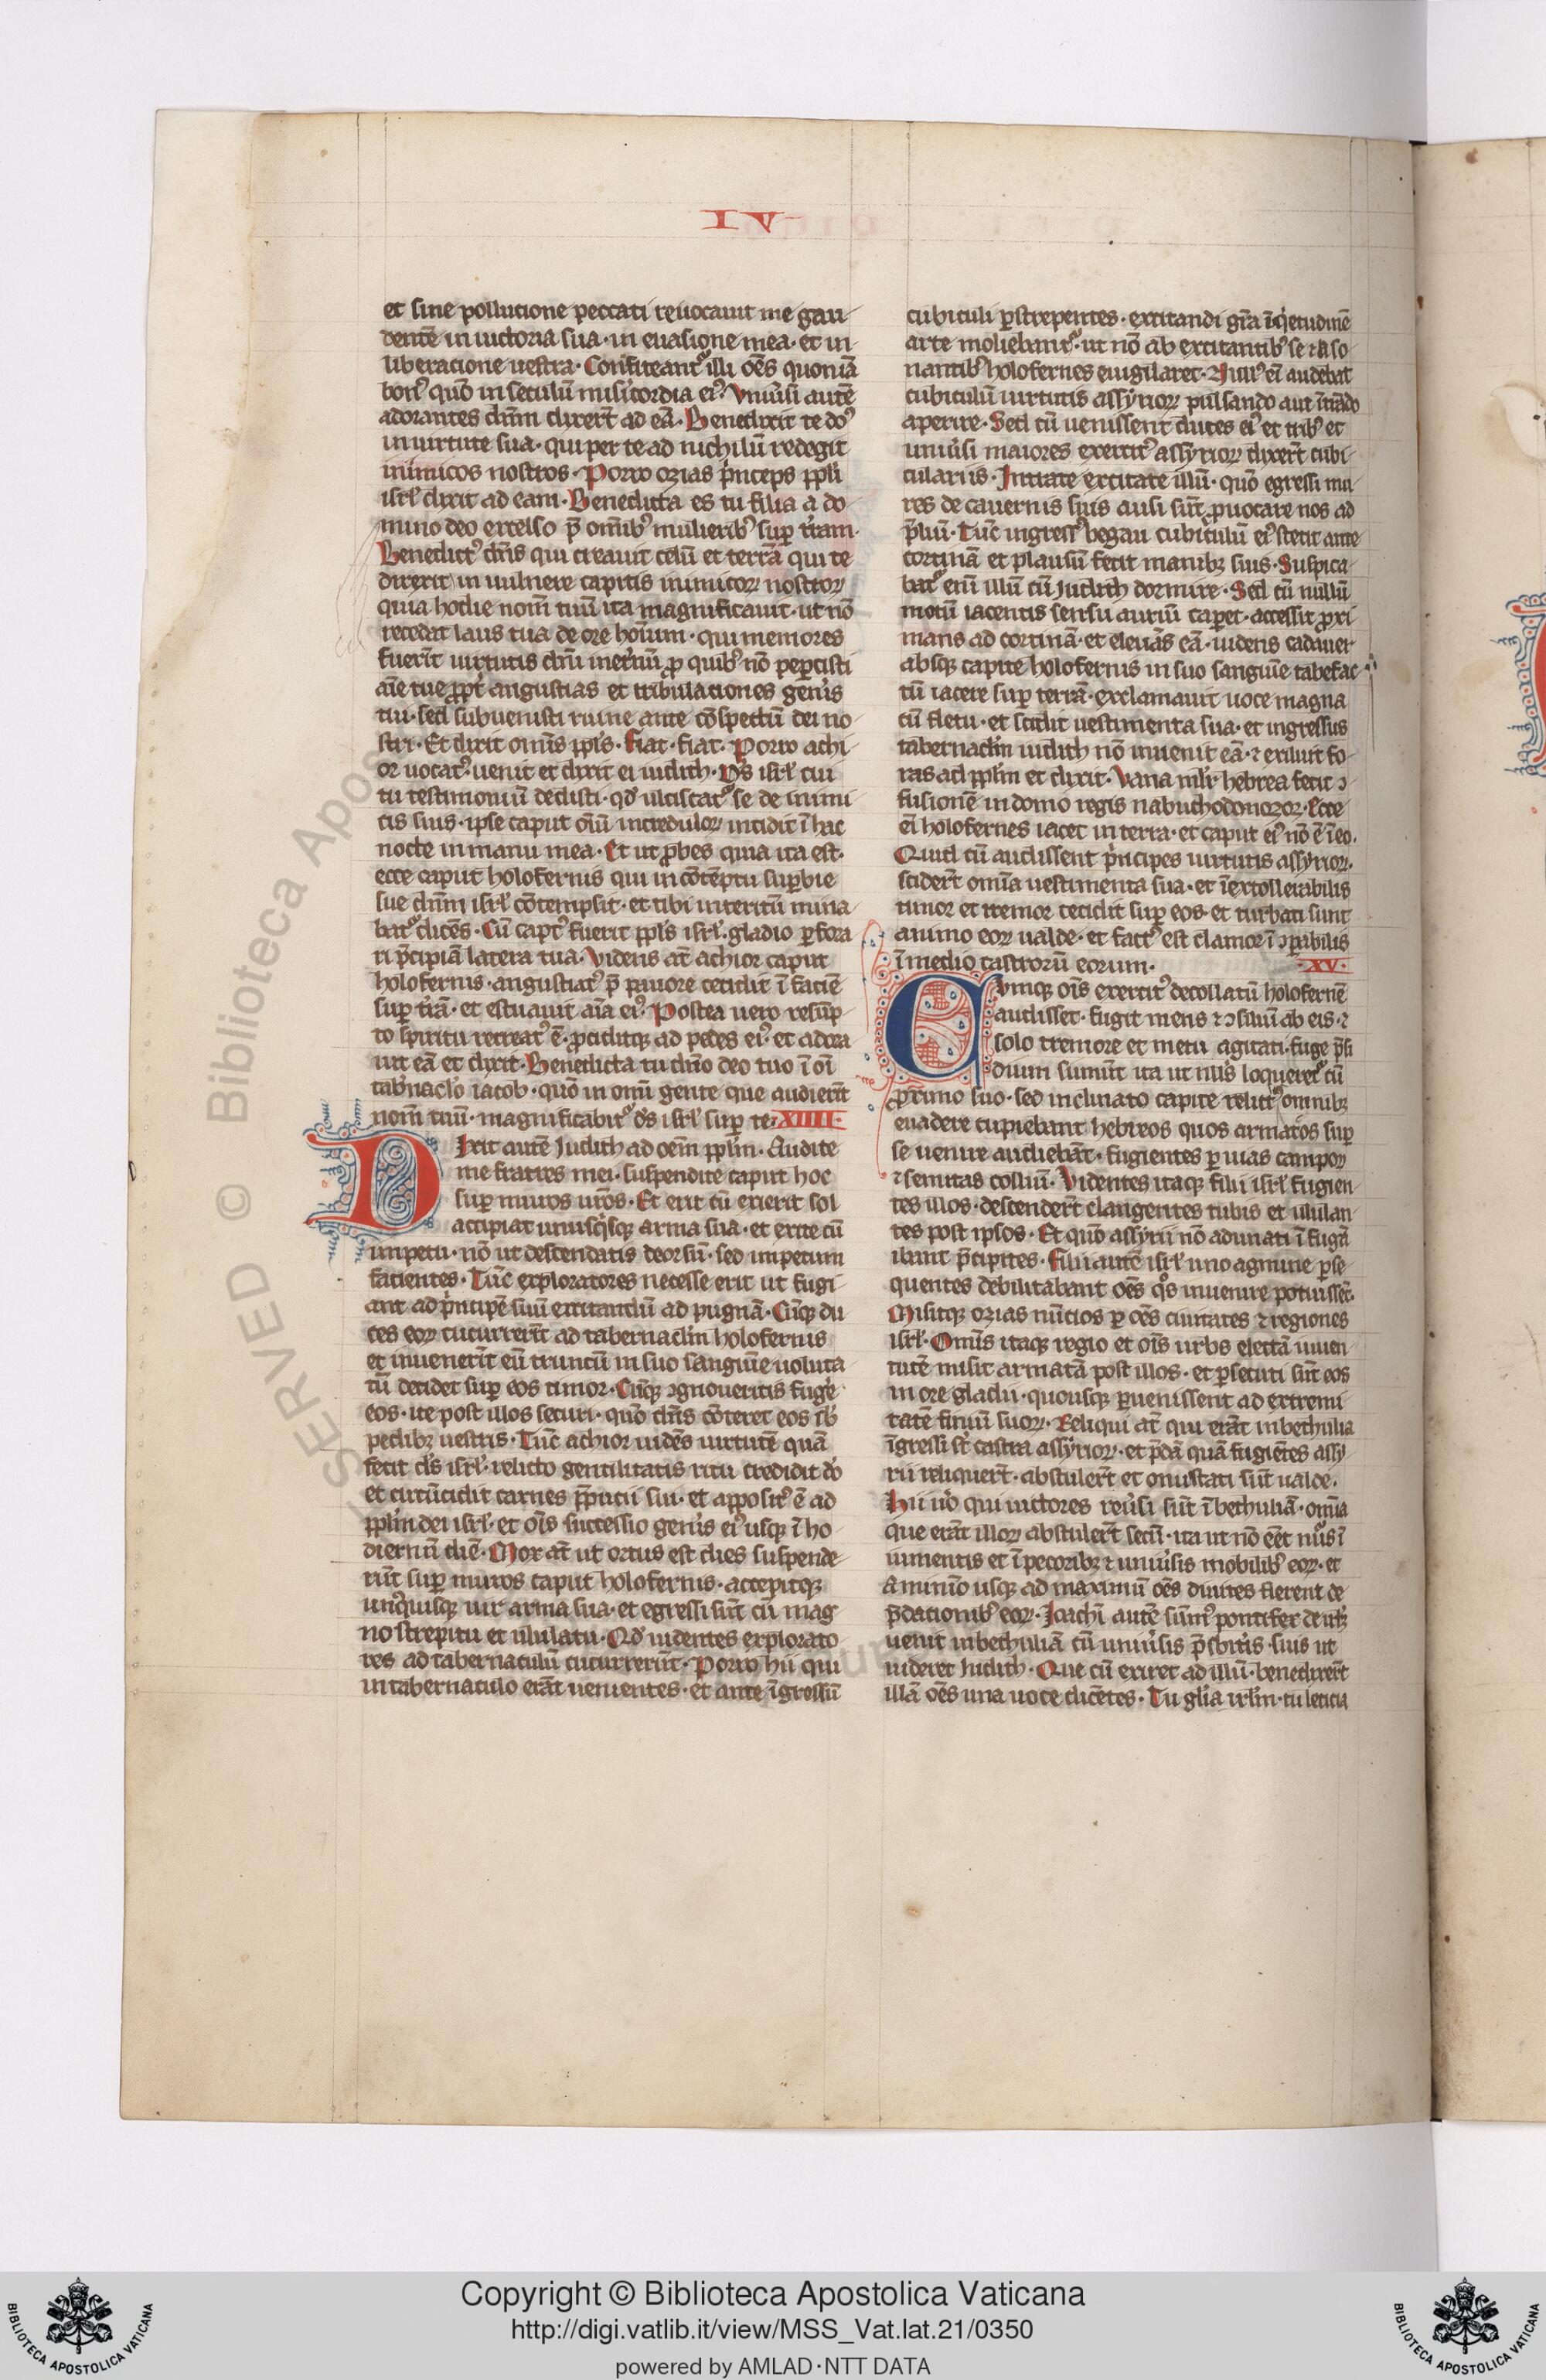 IV
et sine pollucione peccati reuocauit me gau
dentē in uictoria sua · in euasione mea · et in
liberacione uestra · Confiteant᷑ illi oēs quoniā
bonꝰ quō in seculū misicordia eiꝰ · Vniuͥsi autē
adorantes dn̄m dixerūt ad eā · Benedixit te doꝰ
in uirtute sua · qui per te ad nichilū redegit
inimicos nostros · Porro ozias pͥnceps ppłi
isrł dixit ad eam · Benedicta es tu filia a do
mino deo excelso p̄ om̄ibꝰ mulieribꝰ suꝑ t̄ram ·
Benedictꝰ dn̄s qui creauit celū et terrā qui te
direxit in uulnere capitis inimicoꝝ nostroꝝ
quia hodie nom̄ tuū ita magnificauit · ut nō
recedat laus tua de ore hoīum · qui memores
fuerīt uirtutis dn̄i inet̄nū ꝓ quibꝰ nō peꝑcisti
aīe tue ꝓpt̄ angustias et tribulaciones gen̄is
tui · sed subuenisti ruine ante cōspectū dei no
stri · Et dixit om̄is ppłs · fiat · fiat · Porro achi
or uocatꝰ uenit et dixit ei iudith · Ds̄ isrł cui
tu testimoniū dedisti · qd̄ ulciscat᷑ se de inimi
cis suis · ipse caput oīū inceduloꝝ incidit ī hac
nocte in manu mea · Et ut ꝓbes quia ita est ·
ecce caput holofernis qui in cōtēptu suꝑbie
sue dn̄m isrł cōtempsit · et tibi interitū mina
bat᷑ dicēs · Cū captꝰ fuerit ppłs isrł · gladio ꝑfora
ri p̄cipiā latera tua · Videns at̄ achior caput
holofernis · angustiatꝰ p̄ pauore cecidit ī faciē
suꝑ t̄rā · et estuauit aīa eiꝰ · Postea uero resūp
to spiritu recreatꝰ ē · ꝓciditqꝫ ad pedes eiꝰ · et adora
uit eā et dixit · Benedicta tu dn̄o deo tuo ī oī
tab̄naclo iacob · quō in omī gente que audierīt
nom̄ tuū · magnificabit᷑ ds̄ isrł suꝑ te · XIIII ·
Dixit autē Iudith ad oēm ppłm · Audite
me fratres mei · suspendite caput hoc
suꝑ muros ur̄os · Et erit cū exierit sol
accipiat unusqͥsqꝫ arma sua · et exite cū
impetu · nō ut descendatis deorsū · sed impetum
facientes · Tūc exploratores necesse erit ut fugi
ant ad pͥncipē suū excitandū ad pugnā · Cūqꝫ du
ces eoꝝ cucurrerīt ad tabernaclm̄ holofernis
et inuenerīt eū truncū in suo sanguīe uoluta
tū decidet suꝑ eos timor · Cūqꝫ ꝯgnoueritis fuge
eos · ite post illos securi · quō dn̄s cōteret eos sb̄
pedibꝫ uestris · Tūc achior uidēs uirtutē quā
fecit ds̄ isrł · relicto gentilitatis ritu credidit do
et circūcidit carnes p̄pucii sui · et appositꝰ ē ad
ppłm dei isrł · et oīs successio gen̄is eiꝰ usqꝫ ī ho
diernū diē · Mox at̄ ut ortus est dies suspende
rūt suꝑ muros caput holofernis · accepitqꝫ
unꝰquisqꝫ uir arma sua · et egressi sūt cū mag
no strepitu et ululatu · Qd̄ uidentes explorato
res ad tabernaculū cucurrerūt · Porro hii qui
in tabernaculo erāt uenientes · et ante īgressū
cubiculi ꝑstrepentes · excitandi grā īqͥetudinē
arte moliebant᷑ · ut nō ab excitantibꝰ se ⁊ a so
nantibꝰ holofernes euigilaret · Nullꝰ eī audebat
cubiculū uirtutis assyrioꝝ pulsando aut ītrādo
aperire · Sed cū uenissent duces eiꝰ et tribꝰ et
uniuͥsi maiores exercitꝰ assyrioꝝ dixerūt cubi
culariis · Intrate excitate illū · quō egressi mu
res de cauernis suis ausi sūt ꝓuocare nos ad
p̄liū · Tūc ingressꝰ begau cubiculū eiꝰ stetit ante
cortinā et plausū fecit manibꝫ suis · Suspica
bat᷑ enī illū cū Iudith dormire · Sed cū nullū
motū iacentis sensu auriū caꝑet · accessit ꝓxi
mans ad cortinā · et eleuās eā · uidens cadauer
absqꝫ capite holofernis in suo sanguīe tabefac
tū iacere suꝑ terrā · exclamauit uoce magna
cū fletu · et scidit uestimenta sua · et ingressus
tabernaclm̄ iudith nō inuenit eā · ⁊ exiluit fo
ras ad ppłm et dixit · Vana mlr̄ hebrea fecit ꝯ
fusionē in domo regis nabuchodonozor · Ecce
eī holofernes iacet in terra · et caput eiꝰ nō ē ī eo ·
Quid cū audissent pͥncipes uirtutis assyrioꝝ ·
sciderūt omīa uestimenta sua · et īextollerabilis
timor et tremor cecidit suꝑ eos · et turbati sunt
animo eoꝝ ualde · et factꝰ est clamor ī ꝯꝑabilis
ī medio castrorū eorum · XV ·
Cumqꝫ oīs exercitꝰ decollatū holofernē
audisset · fugit mens ⁊ ꝯsiliū ab eis · ⁊
solo tremore et metu agitati · fuge p̄si
dium sumūt ita ut nłłs loqueret᷑ cū
ꝓximo suo · sed inclinato capite relictꝰ omnibꝫ
euadere cupiebant hebreos quos armatos suꝑ
se uenire audiebāt · fugientes ꝑ uias campoꝝ
⁊ semitas colliū · Videntes itaqꝫ filii isrł fugien
tes illos · descenderūt clangentes tubis et ululan
tes post ipsos · Et quō assyrii nō adunati ī fugā
ibant p̄cipites · filii autē isrł uno agmine ꝑse
quentes debilitabant oēs qͦs inuenire potuissēt ·
Misitqꝫ ozias nūcios ꝑ oēs ciuitates ⁊ regiones
isrł · Omīs itaqꝫ regio et oīs urbs electā iuuen
tutē misit armatā post illos · et ꝑsecuti sūt eos
in ore gladii · quousqꝫ ꝑuenissent ad extremi
tatē finiū suoꝝ · Reliqui at̄ qui erāt in bethulia
īgressi st̄ castra assyrioꝝ · et p̄dā quā fugiētes assy
rii reliquerūt · abstulerūt et onustati sūt ualde ·
Hii uͦ qui uictores reuͥsi sūt ī bethuliā · omīa
que erāt illoꝝ abstulerūt secū · ita ut nō eēt nūͥs ī
iumentis et ī pecoribꝫ ⁊ uniuͥsis mobilibꝰ eoꝝ · et
a minīo usqꝫ ad maximū oēs diuites fierent de
p̄dationibꝰ eoꝝ · Ioachī autē sūmꝰ pontifex de irłm
uenit in bethuliā cū uniuͥsis p̄sbit̄is suis ut
uideret Iudith · Que cū exiret ad illū · benedixerūt
illā oēs una uoce dicētes · Tu głia irłm · tu leticia
Copyright © Biblioteca Apostolica Vaticana
http://digi.vatlib.it/view/MSS_Vat.lat.21/0350
powered by AMLAD · NTT DATA